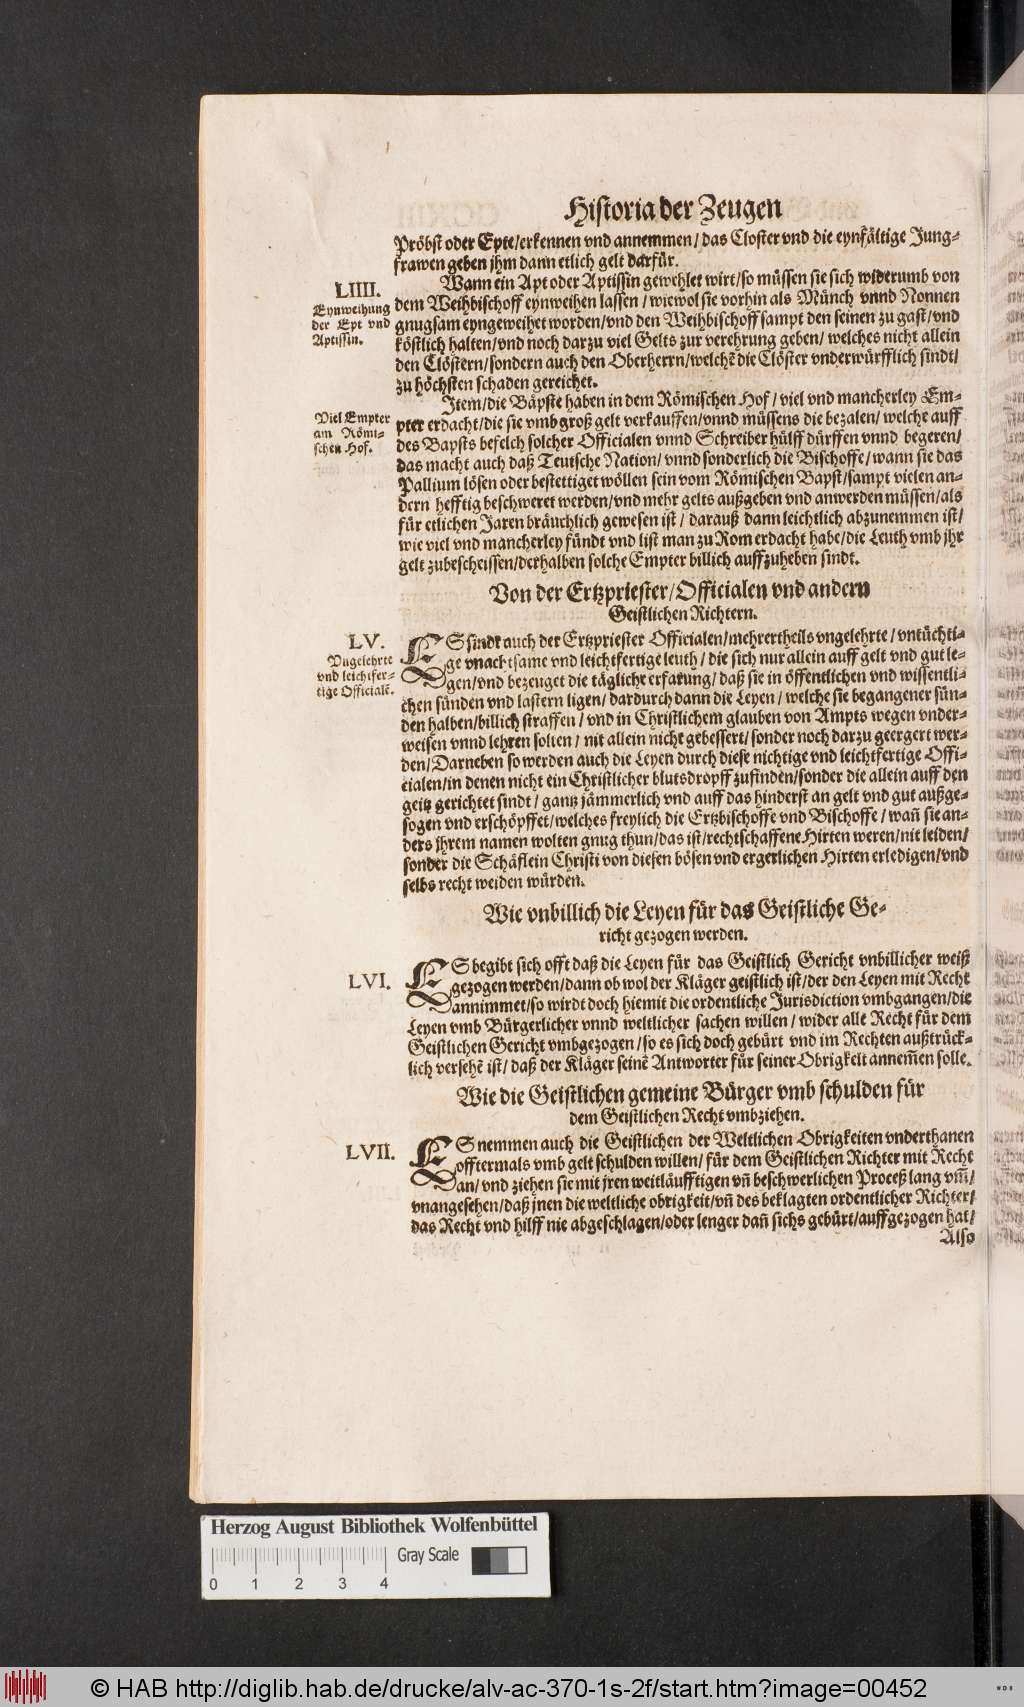 Historia der Zeugen
Pröbst oder Epte/erkennen vnd annemmen/das Closter vnd die eynfältige Jung-
frawen geben jhm dann etlich gelt darfür.
LIIII.
Eynweihung
der Ept vnd
Aptissin.
Wann ein Apt oder Aptissin gewehlet wirt/so müssen sie sich widerumb von
dem Weihbischoff eynweihen lassen/wiewol sie vorhin als Münch vnnd Nonnen
gnugsam eyngeweihet worden/vnd den Weihbischoff sampt den seinen zu gast/vnd
köstlich halten/vnd noch darzu viel Gelts zur verehrung geben/welches nicht allein
den Clöstern/sondern auch den Oberherrn/welchẽ die Clöster vnderwürfflich sindt/
zu höchsten schaden gereichet.
Viel Empter
am Römi-
schen Hof.
Item/die Bäpste haben in dem Römischen Hof/viel vnd mancherley Em-
pter erdacht/die sie vmb groß gelt verkauffen/vnnd müssens die bezalen/welche auff
des Bapsts befelch solcher Officialen vnnd Schreiber hülff dürffen vnnd begeren/
das macht auch daß Teutsche Nation/vnnd sonderlich die Bischoffe/wann sie das
Pallium lösen oder bestettiget wöllen sein vom Römischen Bapst/sampt vielen an-
dern hefftig beschweret werden/vnd mehr gelts außgeben vnd anwerden müssen/als
für etlichen Jaren bräuchlich gewesen ist/darauß dann leichtlich abzunemmen ist/
wie viel vnd mancherley fündt vnd list man zu Rom erdacht habe/die Leuth vmb jhr
gelt zubescheissen/derhalben solche Empter billich auffzuheben sindt.
Von der Ertzpriester/Officialen vnd andern
Geistlichen Richtern.
LV.
Vngelehrte
vnd leichtfer-
tige Officialẽ.
ES sindt auch der Ertzpriester Officialen/mehrertheils vngelehrte/vntüchti-
ge vnachtsame vnd leichtfertige leuth/die sich nur allein auff gelt vnd gut le-
gen/vnd bezeuget die tägliche erfarung/daß sie in öffentlichen vnd wissentli-
chen sünden vnd lastern ligen/dardurch dann die Leyen/welche sie begangener sün-
den halben/billich straffen/vnd in Christlichem glauben von Ampts wegen vnder-
weisen vnnd lehren solten/nit allein nicht gebessert/sonder noch darzu geergert wer-
den/Darneben so werden auch die Leyen durch diese nichtige vnd leichtfertige Offi-
cialen/in denen nicht ein Christlicher blutsdropff zufinden/sonder die allein auff den
geitz gerichtet sindt/gantz jämmerlich vnd auff das hinderst an gelt vnd gut außge-
sogen vnd erschöpffet/welches freylich die Ertzbischoffe vnd Bischoffe/wañ sie an-
ders jhrem namen wolten gnug thun/das ist/rechtschaffene Hirten weren/nit leiden/
sonder die Schäflein Christi von diesen bösen vnd ergerlichen Hirten erledigen/vnd
selbs recht weiden würden.
Wie vnbillich die Leyen für das Geistliche Ge-
richt gezogen werden.
LVI.
ES begibt sich offt daß die Leyen für das Geistlich Gericht vnbillicher weiß
gezogen werden/dann ob wol der Kläger geistlich ist/der den Leyen mit Recht
annimmet/so wirdt doch hiemit die ordentliche Jurisdiction vmbgangen/die
Leyen vmb Bürgerlicher vnnd weltlicher sachen willen/wider alle Recht für dem
Geistlichen Gericht vmbgezogen/so es sich doch gebürt vnd im Rechten außtrück-
lich versehẽ ist/daß der Kläger seinẽ Antworter für seiner Obrigkeit annem̃en solle.
Wie die Geistlichen gemeine Bürger vmb schulden für
dem Geistlichen Recht vmbziehen.
LVII.
ES nemmen auch die Geistlichen der Weltlichen Obrigkeiten vnderthanen
offtermals vmb gelt schulden willen/für dem Geistlichen Richter mit Recht
an/vnd ziehen sie mit jren weitläufftigen vñ beschwerlichen Proceß lang vm̃/
vnangesehen/daß jnen die weltliche obrigkeit/vñ des beklagten ordentlicher Richter/
das Recht vnd hilff nie abgeschlagen/oder lenger dañ sichs gebürt/auffgezogen hat/
Also
Herzog August Bibliothek Wolfenbüttel
Gray Scale
0 1 2 3 4
© HAB http://diglib.hab.de/drucke/alv-ac-370-1s-2f/start.htm?image=00452